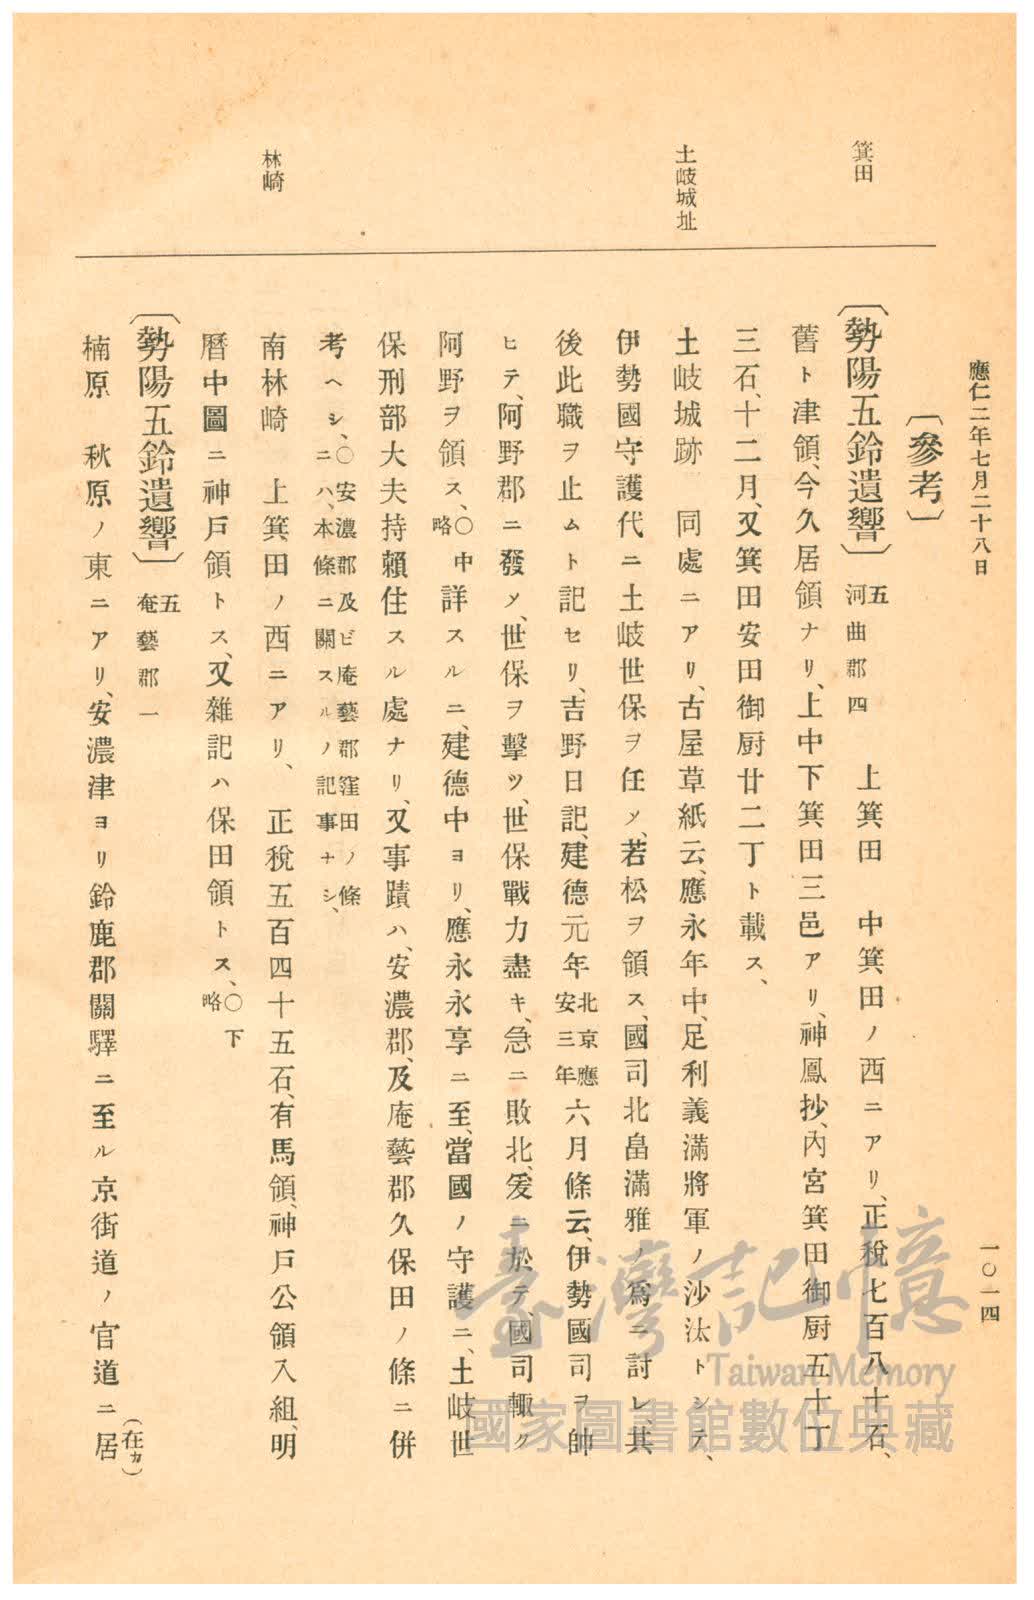 應仁二年七月二十八日
一〇一四
箕田
土岐城址
林崎
〔參考〕
〔勢陽五鈴遺響〕五河曲郡四 上箕田 中箕田ノ西ニアリ、正稅七百八十石、
舊ト津領、今久居領ナリ、上中下箕田三邑アリ、神鳳抄、內宮箕田御厨五十丁
三石、十二月、又箕田安田御厨廿二丁ト載ス、
土岐城跡 同處ニアリ、古屋草紙云、應永年中、足利義滿將軍ノ沙汰トシテ、
伊勢國守護代ニ土岐世保ヲ任メ、若松ヲ領ス、國司北畠滿雅ノ爲ニ討レ、其
後此職ヲ止ムト記セリ、吉野日記、建德元年北京應安三年六月條云、伊勢國司ヲ帥
ヒテ、阿野郡ニ發メ、世保ヲ擊ツ、世保戰力盡キ、急ニ敗北、爰ニ於テ、國司輙ク
阿野ヲ領ス、〇中略詳スルニ、建德中ヨリ、應永永享ニ至、當國ノ守護ニ、土岐世
保刑部大夫持賴住スル處ナリ、又事蹟ハ、安濃郡、及庵藝郡久保田ノ條ニ併
考ヘシ、〇安濃郡及ビ庵藝郡窪田ノ條ニハ、本條ニ關スルノ記事ナシ、
南林崎 上箕田ノ西ニアリ、 正稅五百四十五石、有馬領、神戶公領入組、明
曆中圖ニ神戶領トス、又雜記ハ保田領トス、〇下略
〔勢陽五鈴遺響〕五奄藝郡一
楠原 秋原ノ東ニアリ、安濃津ヨリ鈴鹿郡關驛ニ至ル京街道ノ官道ニ居(在カ)
臺灣記憶
Taiwan Memory
國家圖書館數位典藏